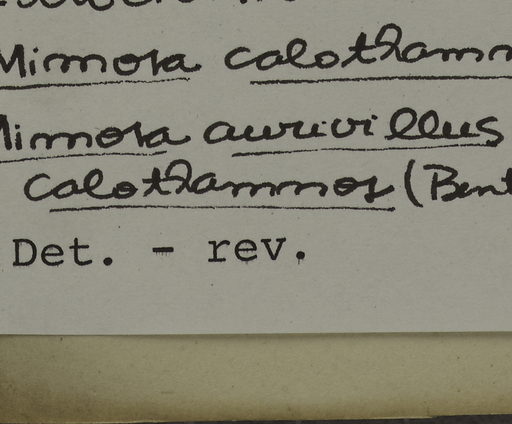 Mimosa calothamn
Mimosa aurivillus
calothamnos (Bent
Det. - rev.